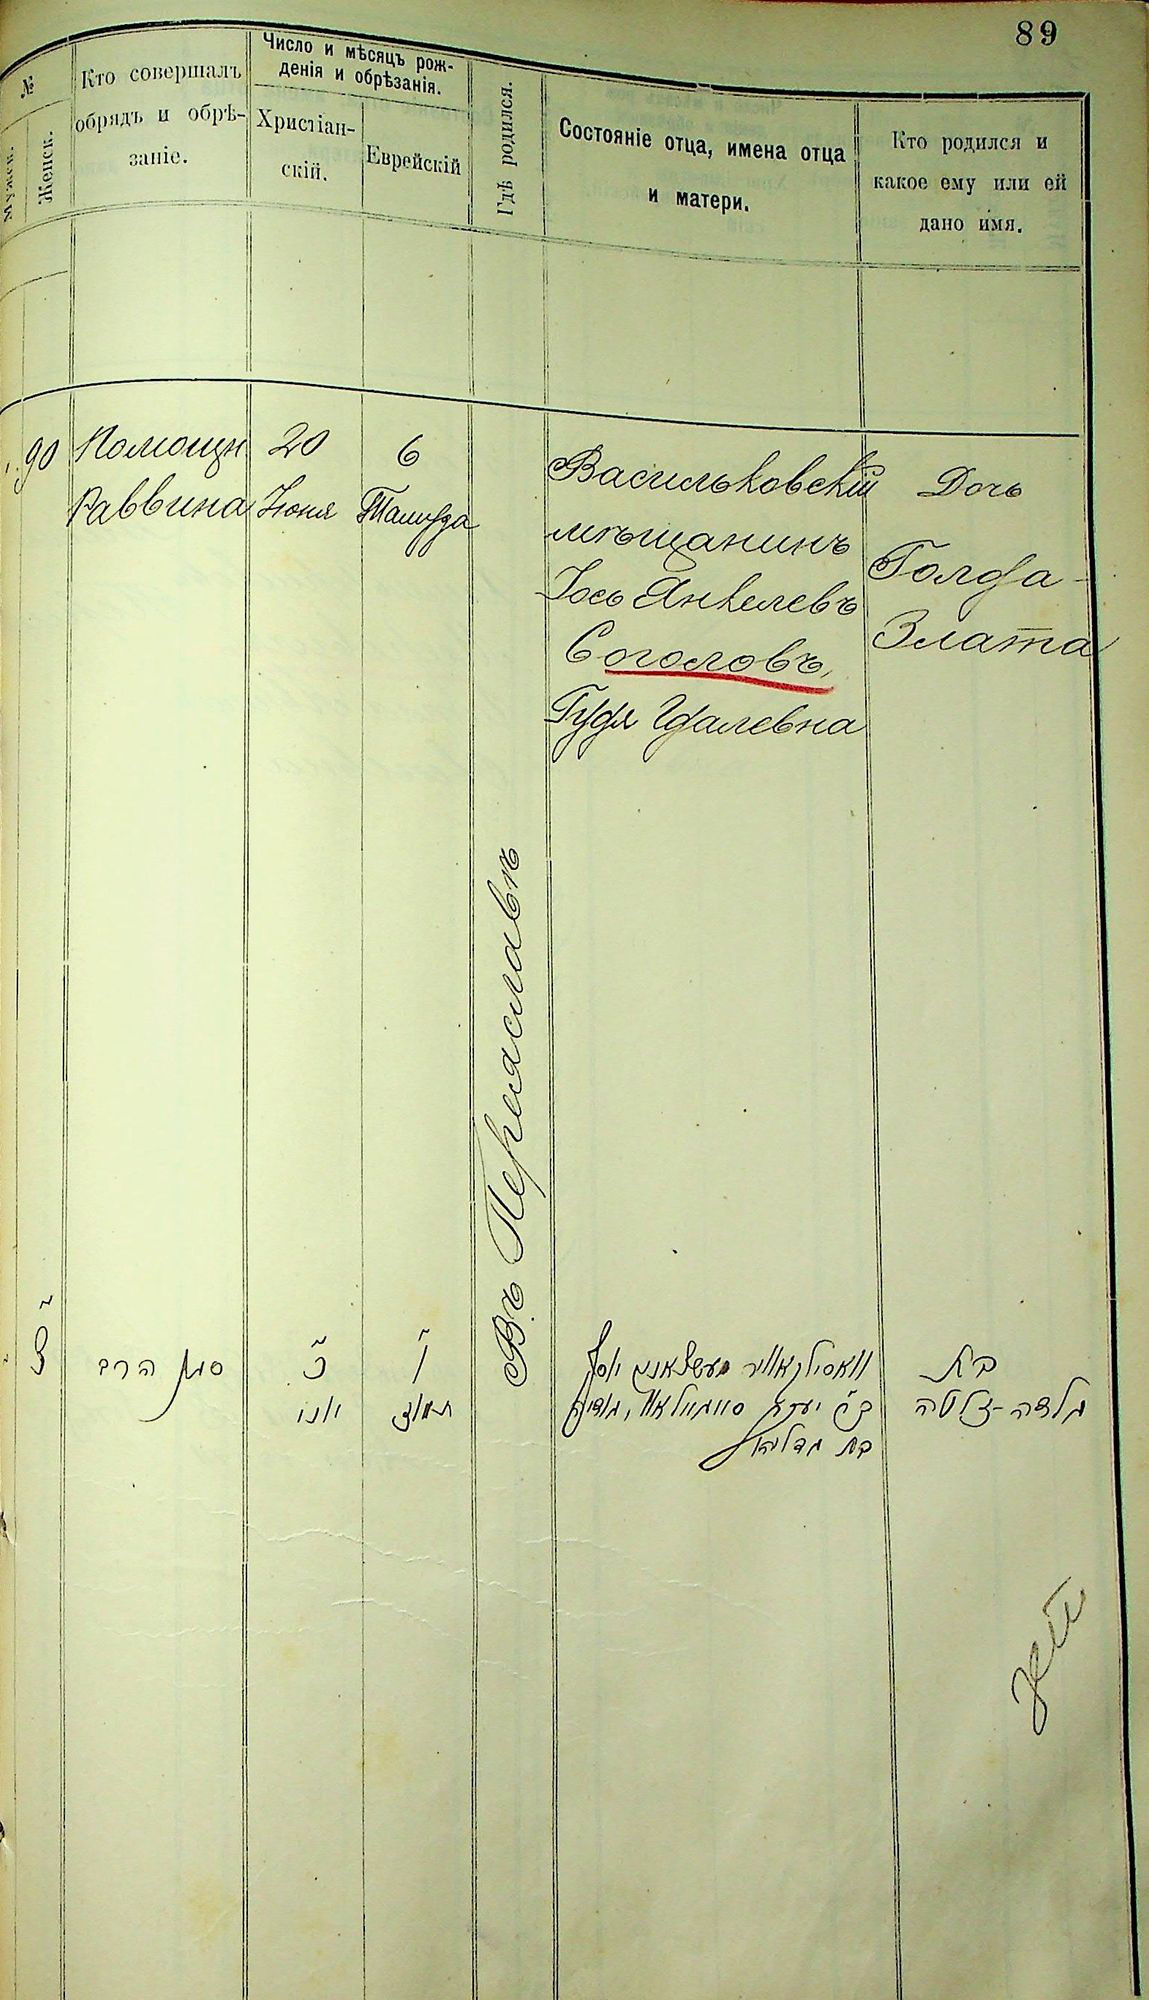 89
№
Мужск.
Женск.
Кто совершалъ
обрядъ и обрѣ-
заніе.
Число и мѣсяцъ рож-
денія и обрѣзанія.
Христіан-
скій.
Еврейскій
Гдѣ родился.
Состояніе отца, имена отца
и матери.
Кто родился и
какое ему или ей
дано имя.
90
Помощн
Раввина
20
Іюня
6
Тамуза
Въ Переяславѣ
Васильковскій
мѣщанинъ
Іось Янкелевъ
Соголовъ,
Гудя Гдалевна
Дочь
Голда-
Злата
צ
סגן הרב
כ
יוני
ו
תמוז
יוסף
בר יעקב
בת גדליהו
בת
גולדה-זלטה